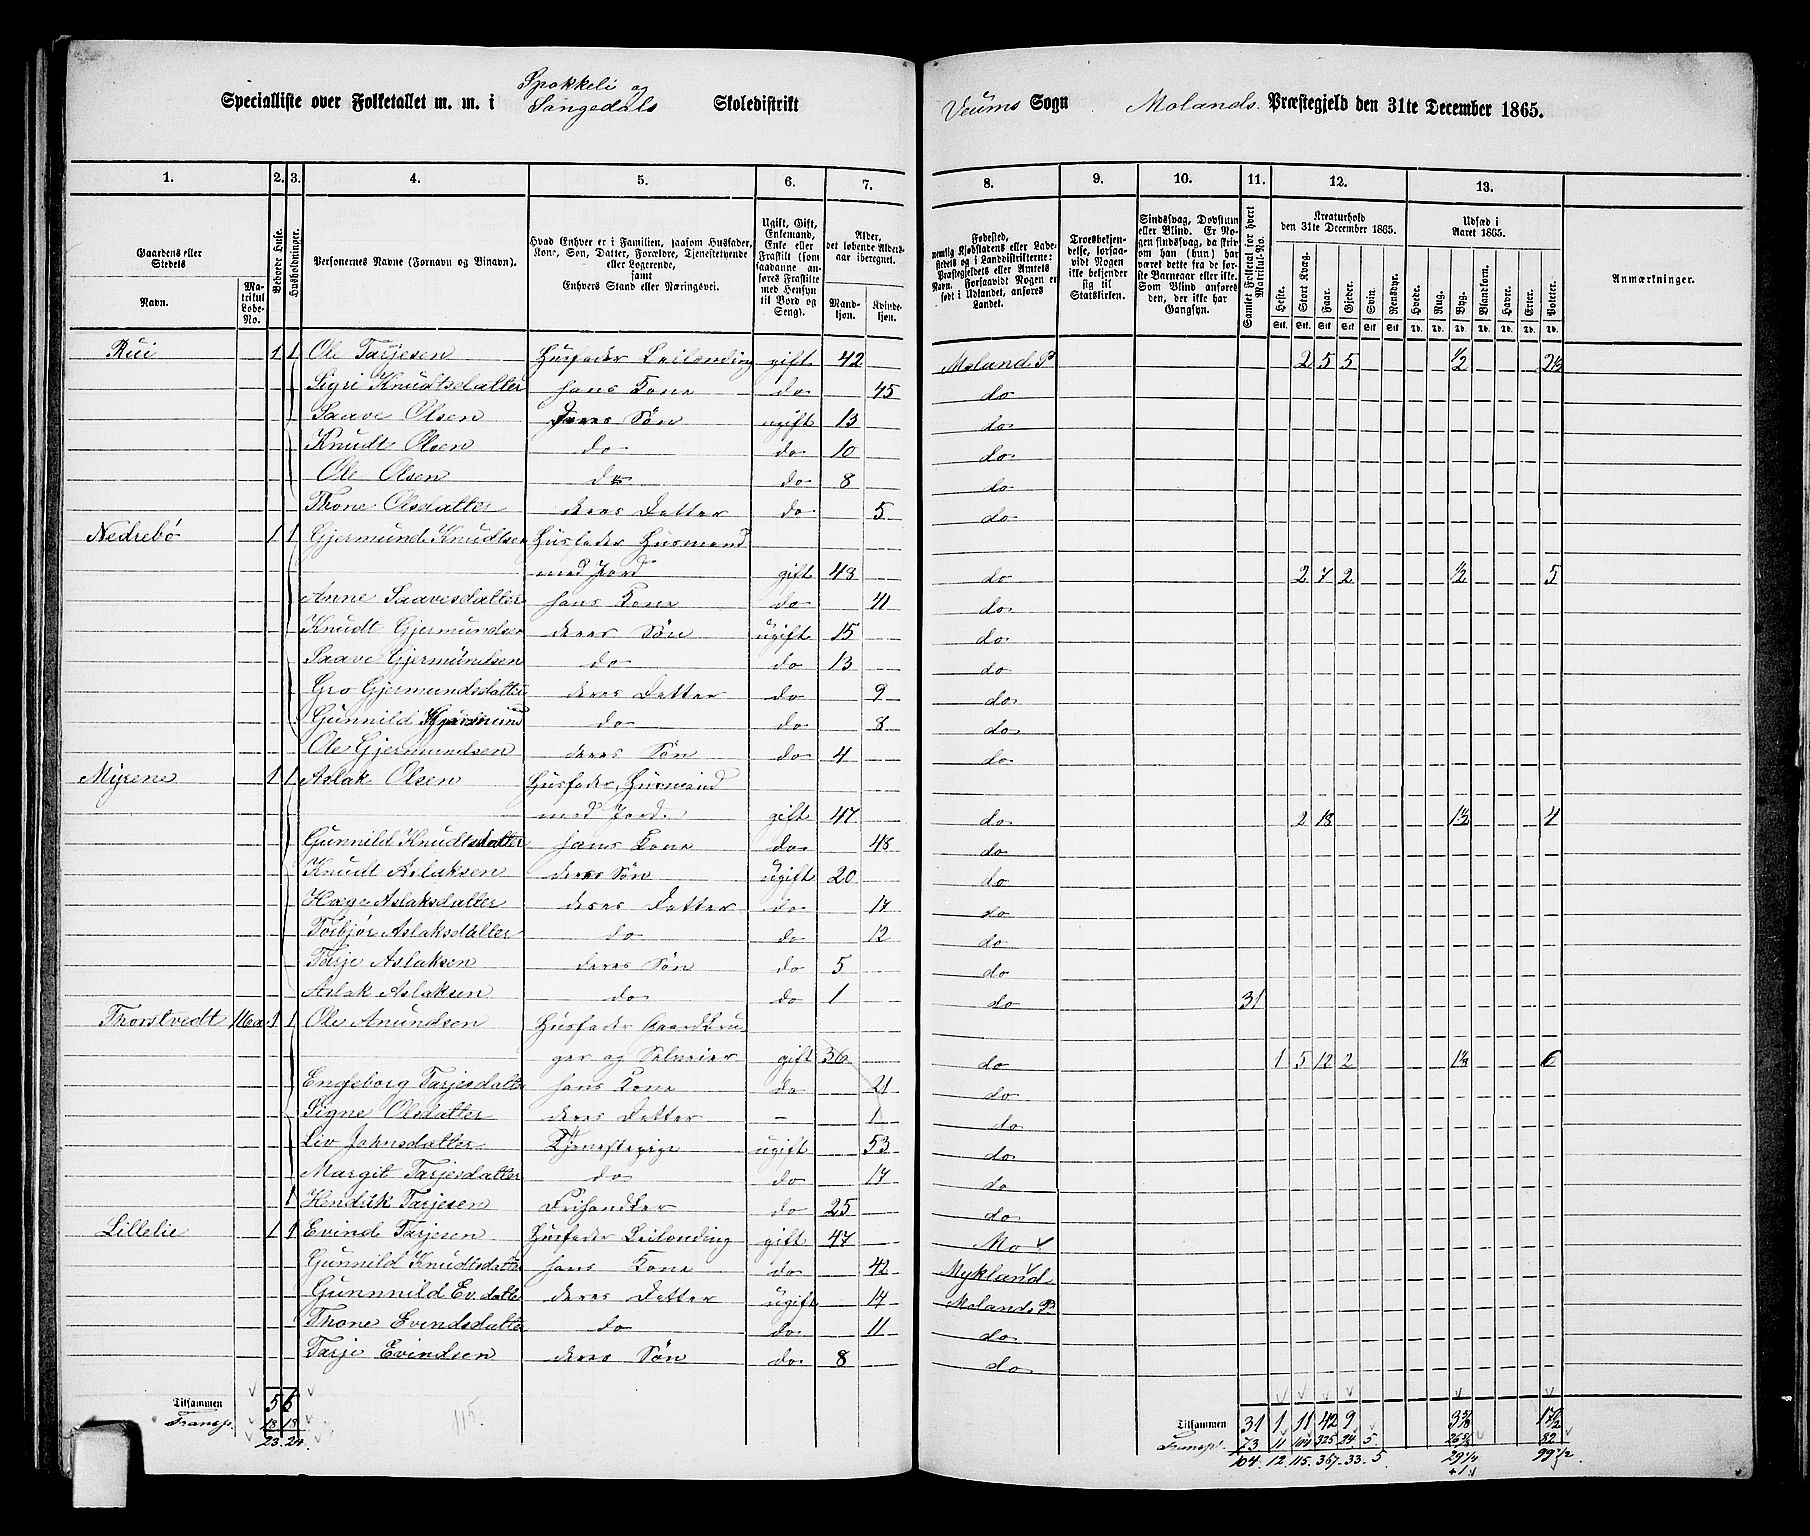 Specialliste over Folketallet m. m. i Spokkeli og Songedals Skoledistrikt Veums Sogn Molands Præstegjeld den 31te December 1865.
1. 2. 3. 4. 5. 6. 7. 8. 9. 10. 11. 12. 13.
Gaardens eller Stedets Navn. Matrikul Løbe-No. Beboede Huse. Husholdninger. Personernes Navne (Fornavn og Tilnavn). Hvad Enhver er i Familien, saasom Husfader, Kone, Søn, Datter, Forældre, Tjenestetyende eller Logerende, samt Enhvers Stand eller Næringsvei. Ugift, Gift, Enkemand, Enke eller Fraskilt (som saadanne anføres Fraskilte med Hensyn til Bord og Seng). Alder, det løbende Aldersaar iberegnet. Mandkjøn. Kvindekjøn.
Fødested, nemlig Kjøbstadens eller Ladestedets og i Landdistrikterne: Præstegjeldets eller Amtets Navn. Forsaavidt Nogen er født i Udlandet, anføres Landet. Troesbekjendelse, forsaavidt Nogen ikke bekjender sig til Statskirken. Sindssvag, Døvstum eller Blind. Er Nogen sindssvag, da skriv om han (hun) har været dette fra de første Barneaar eller ikke. Som Blind anføres den, der ikke har Gangsyn. Samlet Folketal for hvert Matrikul-No. Kreaturhold den 31te December 1865. Heste. Stort Kvæg. Faar. Gjeder. Svin. Rensdyr. Udsæd i Aaret 1865. Hvede. Rug. Byg. Blandkorn. Havre. Erter. Poteter. Anmærkninger.
Rui 1 1 Ole Tarjesen Husfader Leilending gift 42 Molands P 2 5 5 1/2 2 1/2
Sigri Knudtsdatter hans Kone do 45 do
Saave Olsen deres Søn ugift 13 do
Knudt Olsen do do 10 do
Ole Olsen do do 8 do
Thone Olsdatter deres Datter do 5 do
Nedrebø 1 1 Gjermund Knudtsen Husfader Husmand
med Jord gift 48 do 2 7 2 1/2 5
Anne Saavesdatter hans Kone do 41 do
Knudt Gjermundsen deres Søn ugift 15 do
Saave Gjermundsen do do 13 do
Gro Gjermundsdatter deres Datter do 9 do
Gunnild Gjermund do do 8 do
Ole Gjermundsen deres Søn do 4 do
Myrene 1 1 Aslak Olsen Husfader, Husmand
med Jord. gift 47 do 2 18 4
Gunnild Knudtsdatter hans Kone do 48 do
Knudt Aslaksen deres Søn ugift 20 do
Hæge Aslaksdatter deres Datter do 17 do
Torbjør Aslaksdatter do do 12 do
Tarje Aslaksen deres Søn do 5 do
Aslak Aslaksen do do 1 do 31
Thorstvedt 1 1 Ole Anundsen Husfader Gaardbru-
ger og Selveier gift 36 do 1 5 12 2 6
Engeborg Tarjesdatter hans Kone do 21 do
Signe Olsdatter deres Datter — 1 do
Liv Johnsdatter Tjenestepige ugift 53 do
Margit Tarjesdatter do do 17 do
1 Hendrik Tarjesen do 25 do
Lillelie 1 1 Evind Tarjesen Husfader Leilending gift 47 Mo
Gunnild Knudtsdatter hans Kone do 42 Mykland
Gunnild Ev.datter deres Datter ugift 17 Molands P
Thone Evindsdatter do do 11 do
Tarje Evindsen deres Søn do 8 do
Tilsammen 5 6 Tilsammen 31 1 11 42 9 17 1/2
Transp. 18 18 115. Transp. 73 11 104 325 24 5 82
23 24 104 12 115 367 33 5 29 1/4 99 1/2
+1